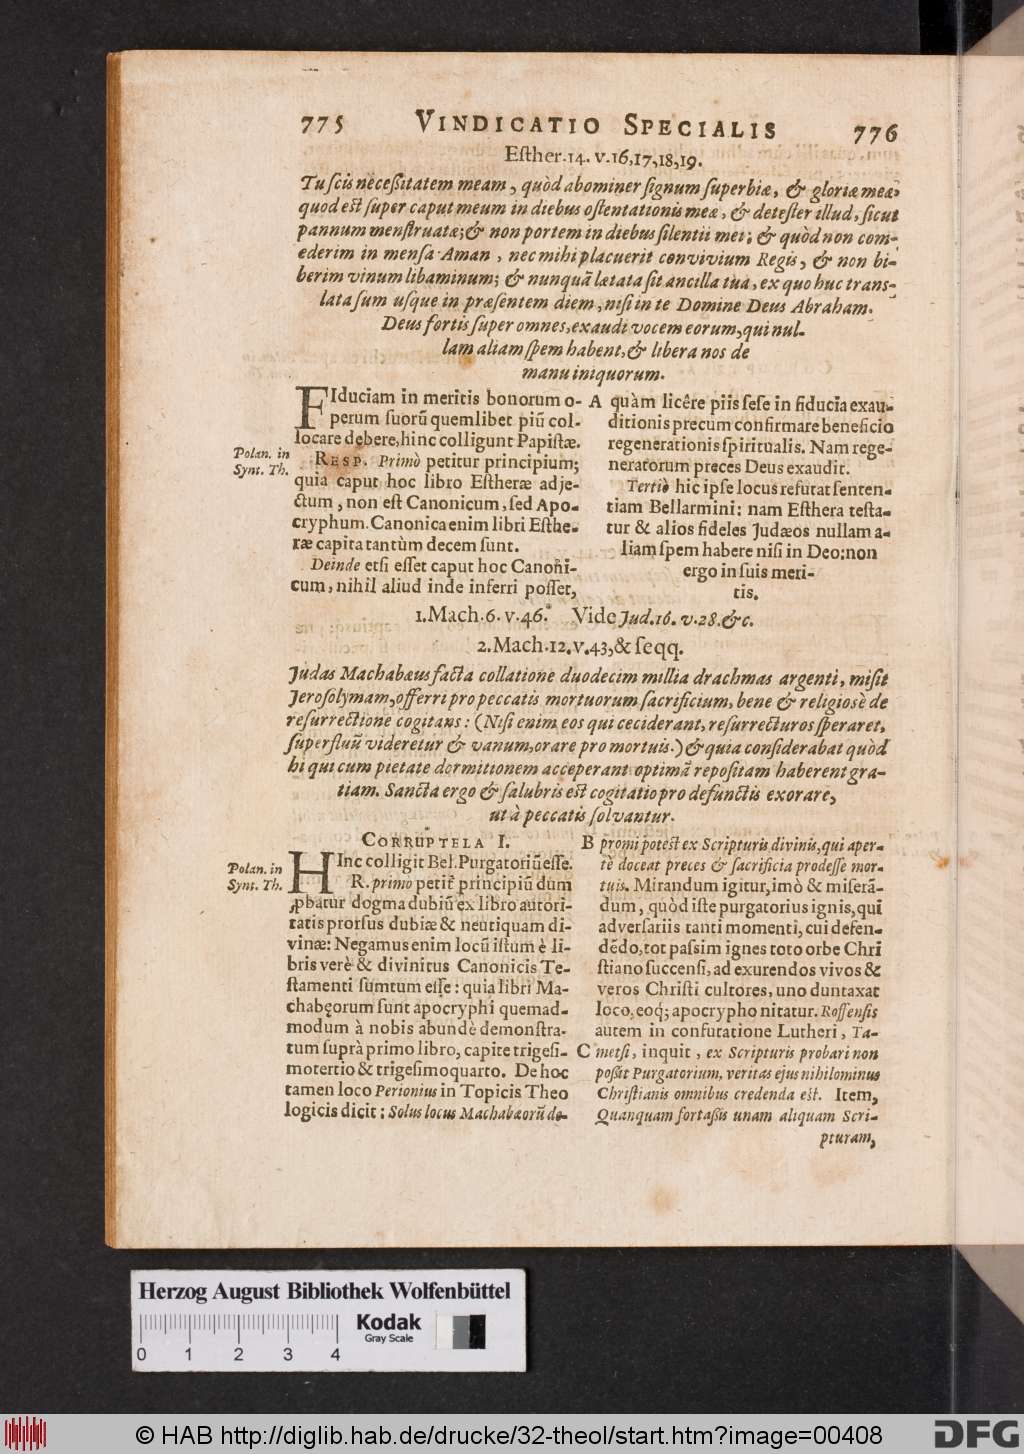 775 VINDICATIO SPECIALIS 776
Eſther.14. v.16,17,18,19.
Tu ſcis neceßitatem meam, quòd abominer ſignum ſuperbiæ, & gloriæ meæ,
quod eſt ſuper caput meum in diebus oſtentationis meæ, & deteſter illud, ſicut
pannum menſtruatæ; & non portem in diebus ſilentii mei; & quòd non com-
ederim in menſa Aman, nec mihi placuerit convivium Regis, & non bi-
berim vinum libaminum; & nunquā lætata ſit ancilla tua, ex quo huc trans-
lata ſum uſque in præſentem diem, niſi in te Domine Deus Abraham.
Deus fortis ſuper omnes, exaudi vocem eorum, qui nul-
lam aliam ſpem habent, & libera nos de
manu iniquorum.
FIduciam in meritis bonorum o-
perum ſuorū quemlibet piū col-
locare debere, hinc colligunt Papiſtæ.
Polan. in
Synt. Th.
RESP. Primò petitur principium;
quia caput hoc libro Eſtheræ adje-
ctum, non eſt Canonicum, ſed Apo-
cryphum. Canonica enim libri Eſthe-
ræ capita tantùm decem ſunt.
Deinde etſi eſſet caput hoc Canoñi-
cum, nihil aliud inde inferri poſſet,
A quàm licêre piis ſeſe in fiducia exau-
ditionis precum confirmare beneficio
regenerationis ſpiritualis. Nam rege-
neratorum preces Deus exaudit.
Tertiò hic ipſe locus refutat ſenten-
tiam Bellarmini: nam Eſthera teſta-
tur & alios fideles Judæos nullam a-
liam ſpem habere niſi in Deo: non
ergo in ſuis meri-
tis.
1.Mach.6. v.46. Vide Jud.16. v.28.&c.
2.Mach.12.v.43,& ſeqq.
Judas Machabæus facta collatione duodecim millia drachmas argenti, miſit
Jeroſolymam, offerri pro peccatis mortuorum ſacrificium, bene & religiosè de
reſurrectione cogitans: (Niſi enim eos qui ceciderant, reſurrecturos ſperaret,
ſuperfluū videretur & vanum, orare pro mortuis.) & quia conſiderabat quòd
hi qui cum pietate dormitionem acceperant optimā repoſitam haberent gra-
tiam. Sancta ergo & ſalubris eſt cogitatio pro defunctis exorare,
ut à peccatis ſolvantur.
CORRUPTELA I.
HInc colligit Bel. Purgatoriū eſſe.
Polan. in
Synt. Th.
R. primò petit̃ principiū dum
ꝓbatur dogma dubiū ex libro autori-
tatis prorſus dubiæ & neutiquam di-
vinæ: Negamus enim locū iſtum è li-
bris verè & divinitus Canonicis Te-
ſtamenti ſumtum eſſe: quia libri Ma-
chabęorum ſunt apocryphi quemad-
modum à nobis abundè demonſtra-
tum ſuprà primo libro, capite trigeſi-
motertio & trigeſimoquarto. De hoc
tamen loco Perionius in Topicis Theo
logicis dicit: Solus locus Machabæorū de-
B promi poteſt ex Scripturis divinis, qui aper-
tè doceat preces & ſacrificia prodeſſe mor-
tuis. Mirandum igitur, imò & miſerā-
dum, quòd iſte purgatorius ignis, qui
adverſariis tanti momenti, cui defen-
dēdo, tot paſsim ignes toto orbe Chri
ſtiano ſuccenſi, ad exurendos vivos &
veros Chriſti cultores, uno duntaxat
loco, eoq́; apocrypho nitatur. Roffenſis
autem in confutatione Lutheri, Ta-
C metſi, inquit, ex Scripturis probari non
poßit Purgatorium, veritas ejus nihilominus
Chriſtianis omnibus credenda eſt. Item,
Quanquam fortaßis unam aliquam Scri-
pturam,
Herzog August Bibliothek Wolfenbüttel
Kodak
Gray Scale
0 1 2 3 4
© HAB http://diglib.hab.de/drucke/32-theol/start.htm?image=00408
DFG